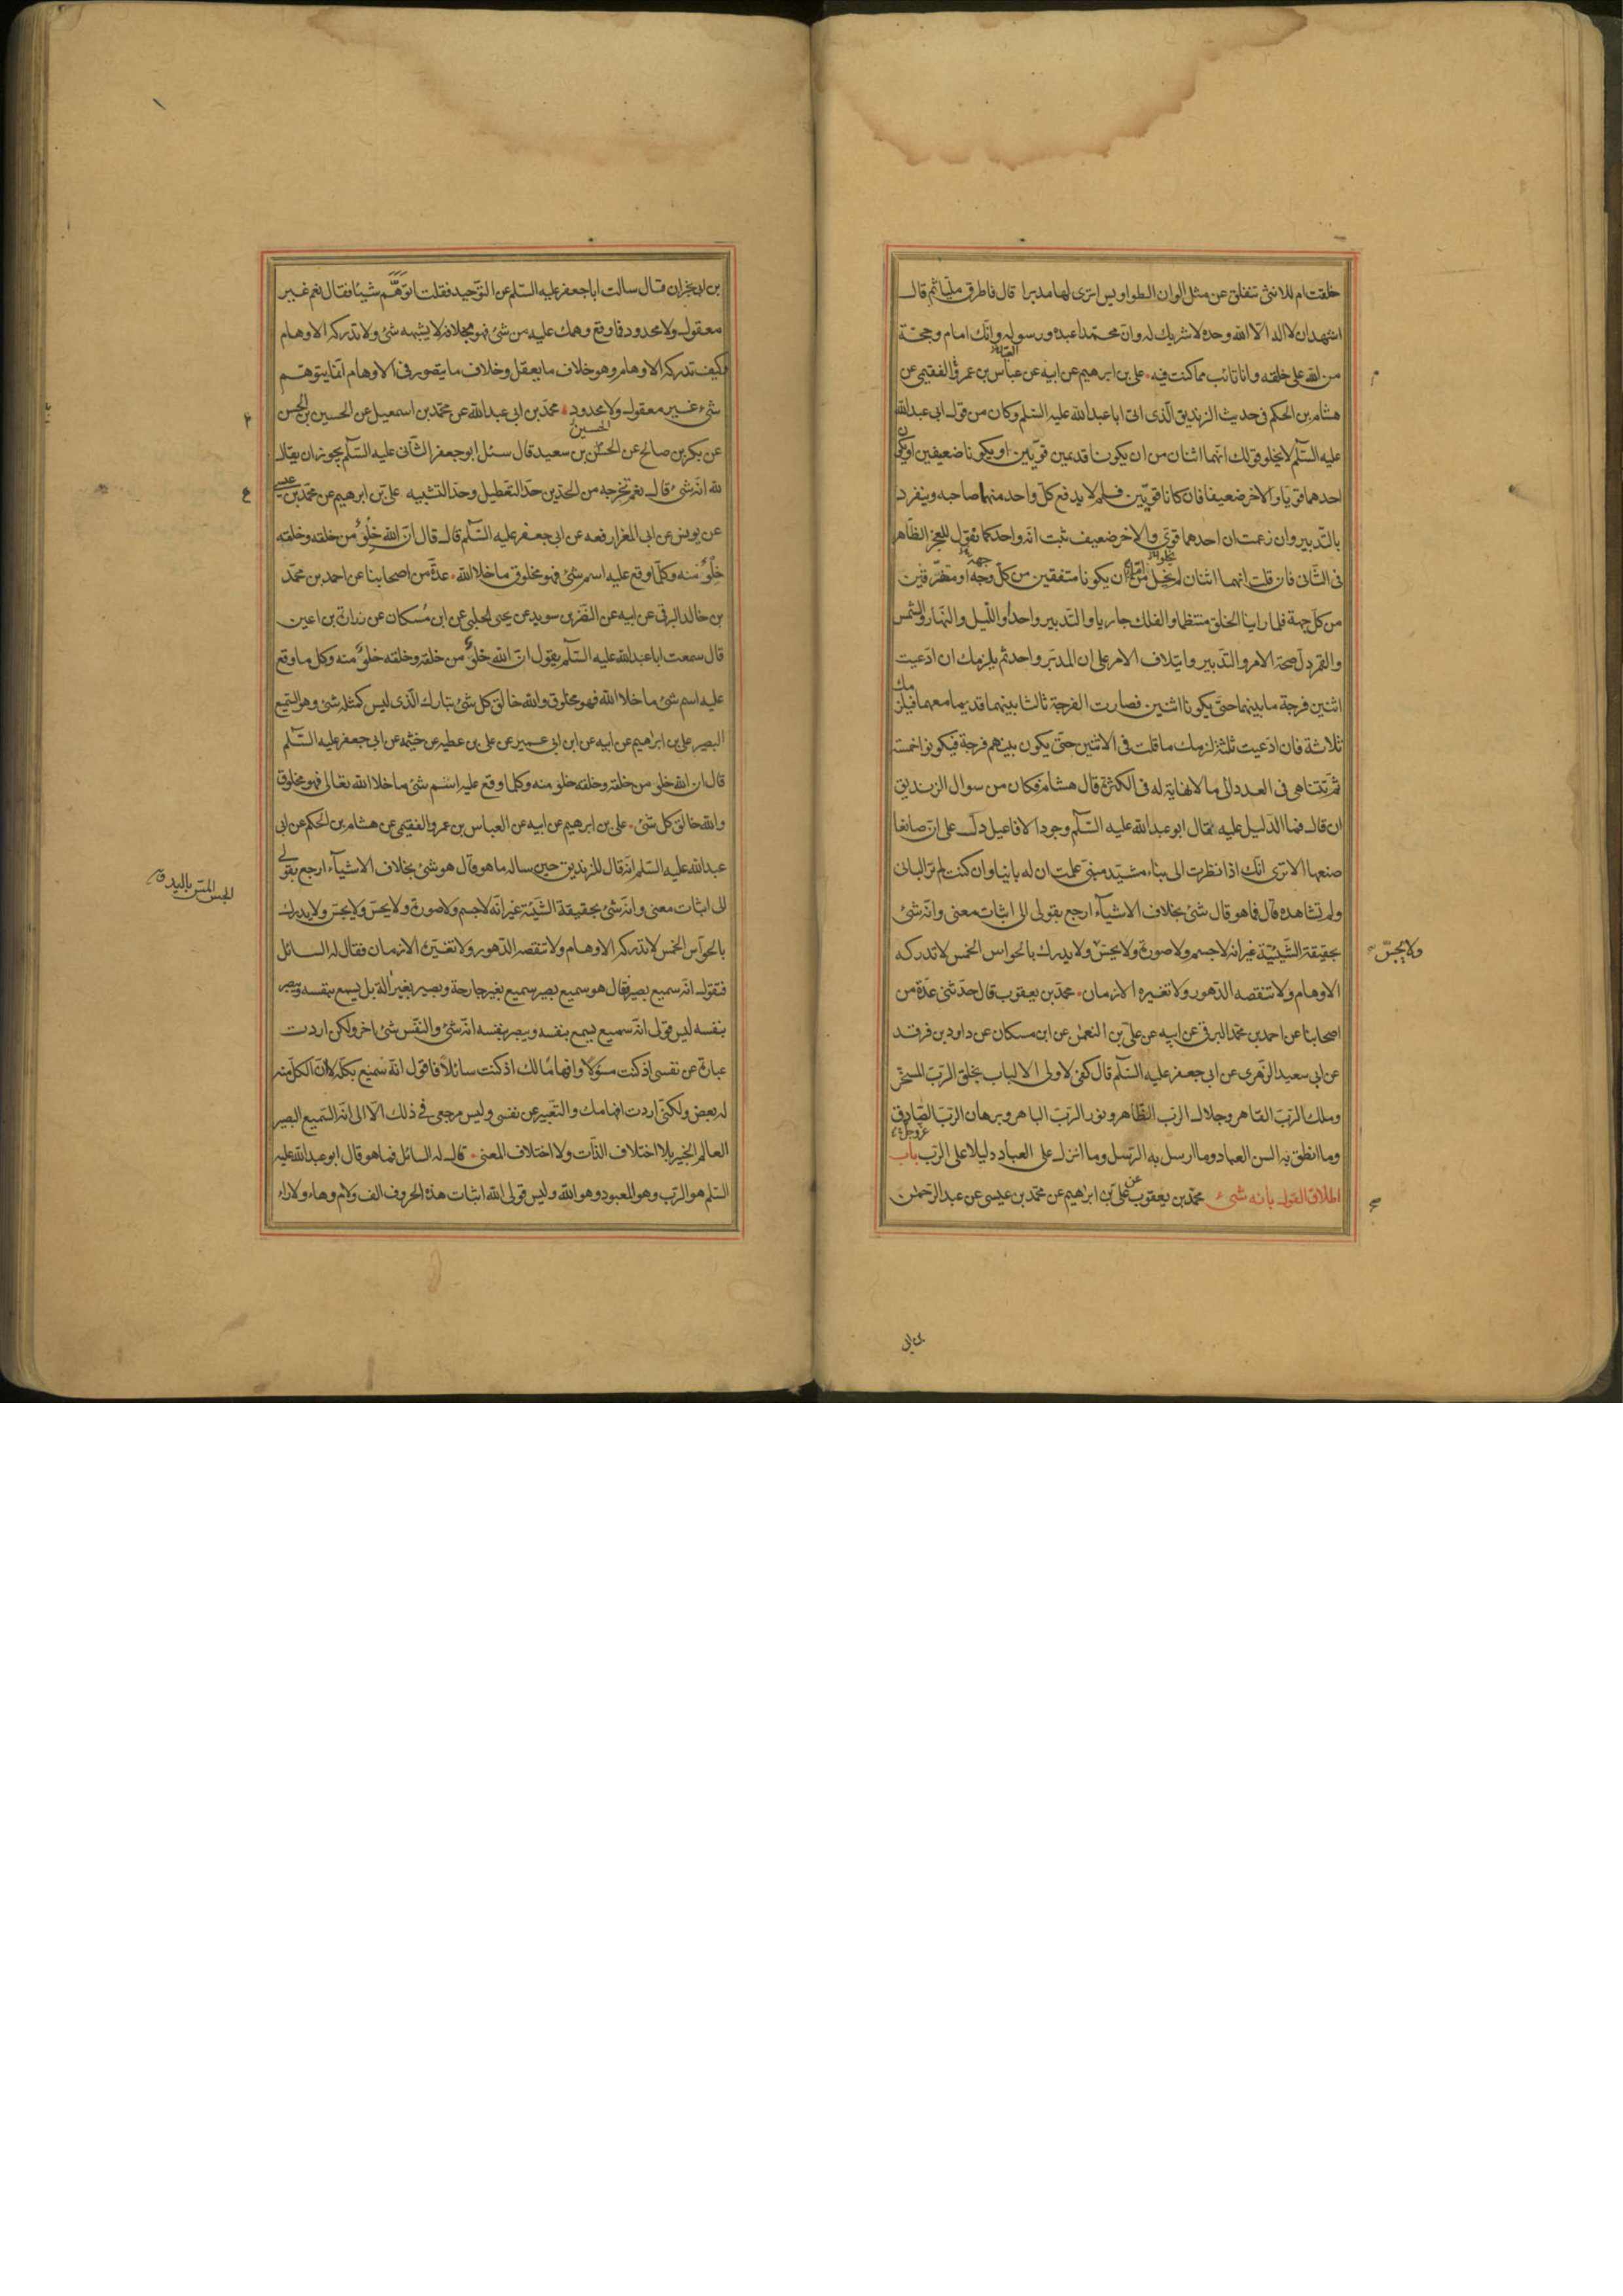 خلقت ام للانثى تنفلق عن مثل الوان الطواويس اترى لها مدبرا قال فاطرق مليا ثم قال
اشهد ان لا اله الا الله وحده لا شريك له وان محمدا عبده ورسوله وانك امام وحجة
من الله على خلقه وانا تائب مما كنت فيه ٠ على بن ابرهيم عن ابيه عن عباس بن عمرو الفقيمى عن
هشام بن الحكم فى حديث الزنديق الذى اتى ابا عبد الله عليه السلم وكان من قول ابى عبد الله
عليه السلم لا يخلو قولك انهما اثنان من ان يكونا قديمين قويين او يكونا ضعيفين او يكون
احدهما قويا والاخر ضعيفا فان كانا قويين فلم لا يدفع كل واحد منهما صاحبه وينفرد
بالتدبير وان زعمت ان احدهما قوى والاخر ضعيف ثبت انه واحد كما نقول للعجز الظاهر
فى الثانى فان قلت انهما اثنان لم يخل من ان يكونا متفقين من كل وجه او مفترقين
من كل جهة فلما راينا الخلق منتظما والفلك جاريا والتدبير واحدا والليل والنهار والشمس
والقمر دل صحة الامر والتدبير وايتلاف الامر على ان المدبر واحد ثم يلزمك ان ادعيت
اثنين فرجة ما بينهما حتى يكونا اثنين فصارت الفرجة ثالثا بينهما قديما معهما فيلزمك
ثلاثة فان ادعيت ثلثة لزمك ما قلت فى الاثنين حتى يكون بينهم فرجة فيكونوا خمسة
ثم تتناهى فى العدد الى ما لا نهاية له فى الكثرة قال هشام فكان من سوال الزنديق
ان قال فما الدليل عليه فقال ابو عبد الله عليه السلم وجود الافاعيل دل على ان صانعا
صنعها الا ترى انك اذا نظرت الى بناء مشيد مبنى علمت ان له بانيا وان كنت لم تر البانى
ولم تشاهده قال فما هو قال شئ بخلاف الاشياء ارجع بقولى الى اثبات معنى وانه شئ
بحقيقة الشيئية غير انه لا جسم ولا صورة ولا يحس ولا يدرك بالحواس الخمس لا تدركه
ولا يجس
الاوهام ولا تنقصه الدهور ولا تغيره الازمان ٠ محمد بن يعقوب قال حدثنى عدة من
اصحابنا عن احمد بن محمد البرقى عن ابيه عن على بن النعمان عن ابن مسكان عن داود بن فرقد
عن ابى سعيد الزهرى عن ابى جعفر عليه السلم قال كفى لاولى الالباب بخلق الرب المسخر
وملك الرب القاهر وجلال الرب الظاهر ونور الرب الباهر وبرهان الرب الصادق
وما انطق به السن العباد وما ارسل به الرسل وما انزل على العباد دليلا على الرب عز وجل باب
اطلاق القول بانه شئ محمد بن يعقوب عن على بن ابرهيم عن محمد بن عيسى عن عبد الرحمن
بن ابى نجران قال سالت ابا جعفر عليه السلم عن التوحيد فقلت اتوهم شيئا فقال نعم غير
معقول ولا محدود فما وقع وهمك عليه من شئ فهو بخلافه لا يشبهه شئ ولا تدركه الاوهام
كيف تدركه الاوهام وهو خلاف ما يعقل وخلاف ما يتصور فى الاوهام انما يتوهم
شئ غير معقول ولا محدود ٠ محمد بن ابى عبد الله عن محمد بن اسمعيل عن الحسين بن الحسن
عن بكر بن صالح عن الحسن بن سعيد قال سئل ابو جعفر الثانى عليه السلم يجوز ان يقال
الحسين
لله انه شئ قال نعم تخرجه من الحدين حد التعطيل وحد التشبيه على بن ابرهيم عن محمد بن عيسى
عن يونس عن ابى المغرا رفعه عن ابى جعفر عليه السلم قال قال ان الله خلو من خلقه وخلقه
خلو منه وكلما وقع عليه اسم شئ فهو مخلوق ما خلا الله ٠ عدة من اصحابنا عن احمد بن محمد
بن خالد البرقى عن ابيه عن النضر بن سويد عن يحيى الحلبى عن ابن مسكان عن زرارة بن اعين
قال سمعت ابا عبد الله عليه السلم يقول ان الله خلو من خلقه وخلقه خلو منه وكل ما وقع
عليه اسم شئ ما خلا الله فهو مخلوق والله خالق كل شئ تبارك الذى ليس كمثله شئ وهو السميع
البصير على بن ابراهيم عن ابيه عن ابن ابى عمير عن على بن عطيه عن خيثمه عن ابى جعفر عليه السلم
قال ان الله خلو من خلقه وخلقه خلو منه وكلما وقع عليه اسم شئ ما خلا الله تعالى فهو مخلوق
والله خالق كل شئ ٠ على بن ابرهيم عن ابيه عن العباس بن عمرو الفقيمى عن هشام بن الحكم عن ابى
عبد الله عليه السلم انه قال للزنديق حين ساله ما هو قال هو شئ بخلاف الاشياء ارجع بقولى
الى اثبات معنى وانه شئ بحقيقة الشيئية غير انه لا جسم ولا صورة ولا يحس ولا يجس ولا يدرك
الجس المس باليد
بالحواس الخمس لا تدركه الاوهام ولا تنقصه الدهور ولا تغيره الازمان فقال له السائل
فتقول انه سميع بصير فقال هو سميع بصير سميع بغير جارحة وبصير بغير الة بل يسمع بنفسه ويبصر
بنفسه ليس قولى انه سميع يسمع بنفسه وبصير بنفسه انه شئ والنفس شئ اخر ولكن اردت
عبارة عن نفسى اذ كنت مسؤلا وافهاما لك اذ كنت سائلا فاقول انه سميع بكله لا ان الكل منه
له بعض ولكنى اردت افهامك والتعبير عن نفسى وليس مرجعى فى ذلك الا الى انه السميع البصير
العالم الخبير بلا اختلاف الذات ولا اختلاف المعنى ٠ قال له السائل فما هو قال ابو عبد الله عليه
السلم هو الرب وهو المعبود وهو الله وليس قولى الله اثبات هذه الحروف الف ولام وهاء ولا راء